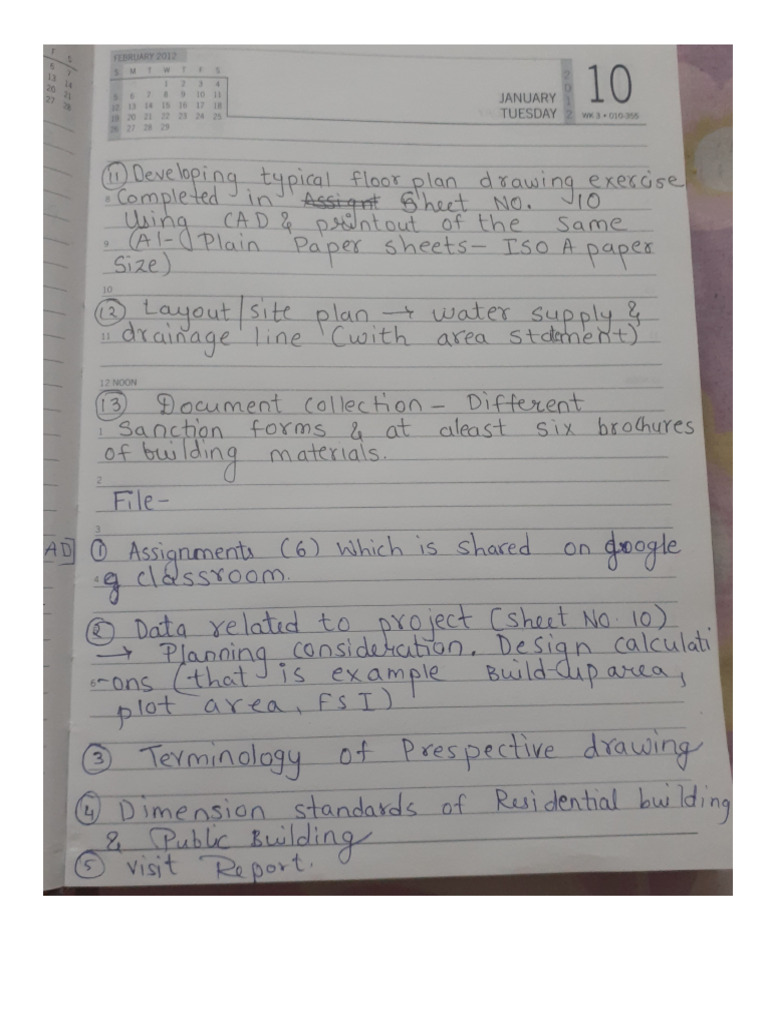 T S
6 7
13 14
20 21
27 28
FEBRUARY 2012
S M T W T F S
1 2 3 4
5 6 7 8 9 10 11
12 13 14 15 16 17 18
19 20 21 22 23 24 25
26 27 28 29
JANUARY
TUESDAY
2012
10
WK 3 • 010-356
(11) Developing typical floor plan drawing exercise
Completed in Assignt Sheet No. 10
Using CAD & printout of the same
(A1-Plain Paper sheets- ISO A paper
Size)
10
(12) Layout/site plan → water supply &
11 drainage line (with area stdement)
12 NOON
(13) Document collection - Different
1 Sanction forms & at aleast six brochures
of building materials.
2
File-
3
AD] ① Assignments (6) which is shared on google
g classroom.
② Data related to project (sheet No. 10)
→ Planning consideration. Design calculati
6 -ons (that is example Build-up area,
plot area, FSI)
③ Terminology of Prespective drawing
④ Dimension standards of Residential building
& Public Building
⑤ visit Report.